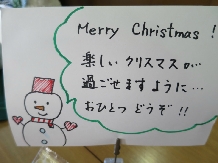 Merry Christmas!
楽しいクリスマスが
過ごせますように…
おひとつどうぞ!!